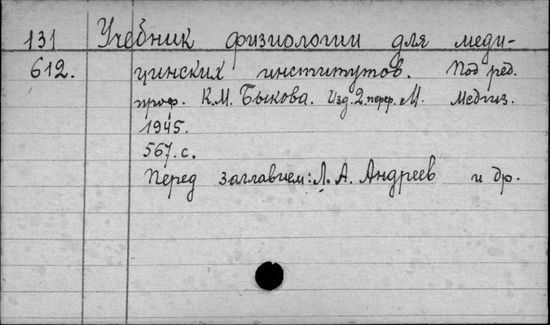 131 Учебник физиологии для меди-
612. цинских институтов. Под ред.
проф. К.М. Быкова. Изд. 2. перер. М. Медгиз.
1945.
567. с.
Перед заглавием: Л. А. Андреев и др.